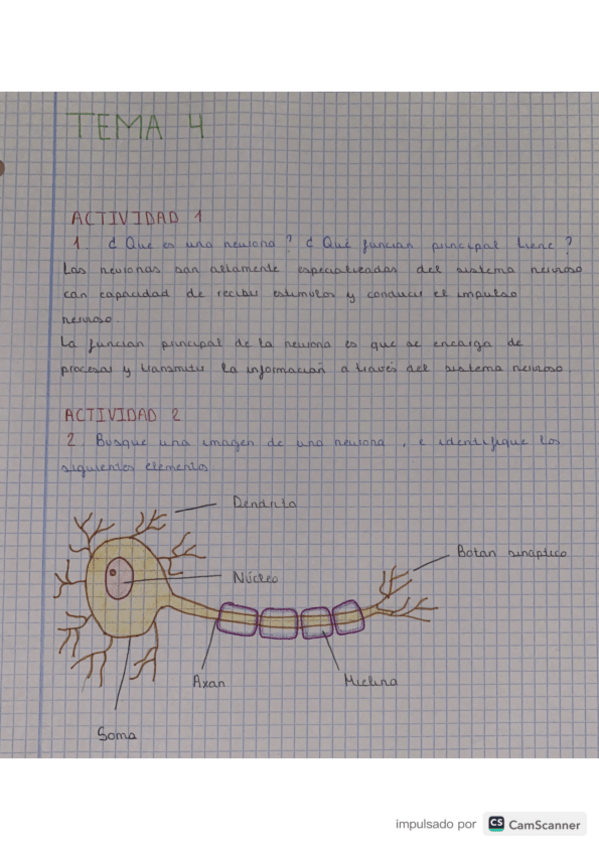 TEMA 4
ACTIVIDAD 1
1. ¿ Que es una neurona ? ¿ Qué función principal tiene ?
Las neuronas son altamente especializadas del sistema nervioso
con capacidad de recibir estimulos y conducir el impulso
nervioso.
La función principal de la neurona es que se encarga de
procesar y transmitir la información a través del sistema nervioso.
ACTIVIDAD 2
2. Busque una imagen de una neurona , e identifique los
siguientes elementos
Dendrita
Botón sináptico
Núcleo
Axón
Mielina
Soma
impulsado por CS CamScanner